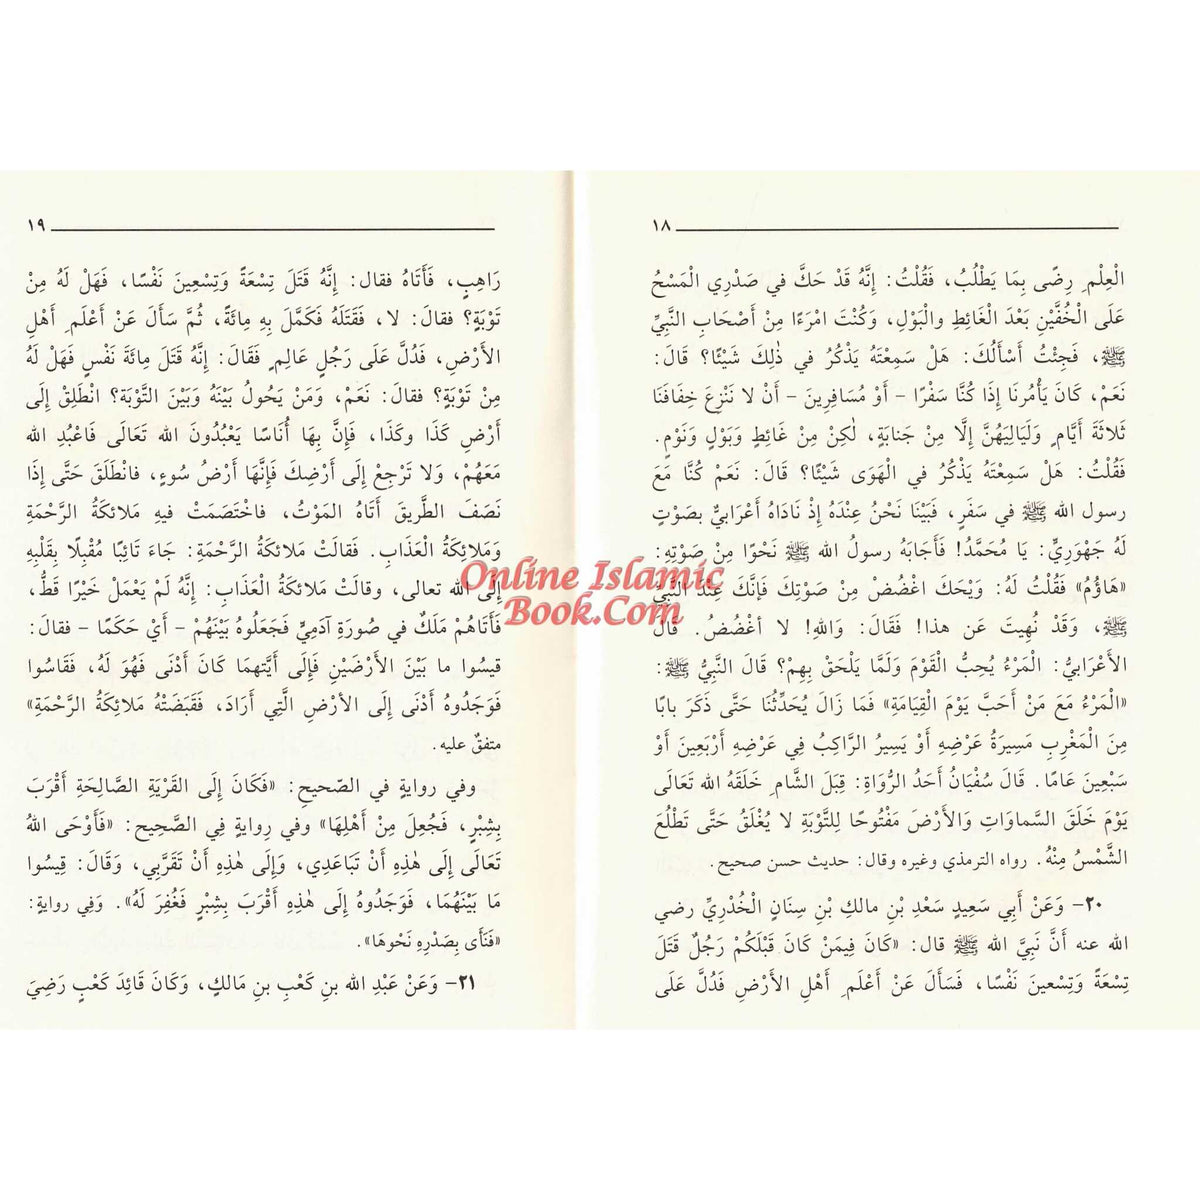 ١٨
الْعِلْمِ رِضًى بِمَا يَطْلُبُ، فَقُلْتُ: إِنَّهُ قَدْ حَكَّ في صَدْرِي الْمَسْحُ
عَلَى الْخُفَّيْنِ بَعْدَ الْغَائِطِ والْبَوْلِ، وَكُنْتَ امْرَءًا مِنْ أَصْحَابِ النَّبِيِّ
ﷺ، فَجِئْتُ أَسْأَلُكَ: هَلْ سَمِعْتَهُ يَذْكُرُ في ذٰلِكَ شَيْئًا؟ قَالَ:
نَعَمْ، كَانَ يَأْمُرُنَا إِذَا كُنَّا سَفْرًا - أَوْ مُسَافِرِينَ - أَنْ لا نَنْزِعَ خِفَافَنَا
ثَلاثَةَ أَيَّامٍ وَلَيَالِيَهُنَّ إِلَّا مِنْ جَنابَةٍ، لٰكِنْ مِنْ غَائِطٍ وَبَوْلٍ وَنَوْمٍ.
فَقُلْتُ: هَلْ سَمِعْتَهُ يَذْكُرُ في الْهَوَى شَيْئًا؟ قَالَ: نَعَمْ كُنَّا مَعَ
رسول الله ﷺ في سَفَرٍ، فَبَيْنَا نَحْنُ عِنْدَهُ إِذْ نَادَاهُ أَعْرَابيٌّ بصَوْتٍ
لَهُ جَهْوَرِيٍّ: يَا مُحَمَّدُ! فَأَجَابَهُ رسولُ الله ﷺ نَحْوًا مِنْ صَوْتِهِ:
«هَاؤُمُ» فَقُلْتُ لَهُ: وَيْحَكَ اغْضُضْ مِنْ صَوْتِكَ فَإِنَّكَ عِنْدَ النَّبِيِّ
ﷺ، وَقَدْ نُهِيتَ عَن هذا! فَقَالَ: وَاللهِ! لا أَغْضُضُ. قَالَ
الأَعْرَابيُّ: الْمَرْءُ يُحِبُّ الْقَوْمَ وَلَمَّا يَلْحَقْ بِهِمْ؟ قَالَ النَّبِيُّ ﷺ:
«الْمَرْءُ مَعَ مَنْ أَحَبَّ يَوْمَ الْقِيَامَةِ» فَمَا زَالَ يُحَدِّثُنَا حَتَّى ذَكَرَ بابًا
مِنَ الْمَغْرِبِ مَسِيرَةُ عَرْضِهِ أَوْ يَسِيرُ الرَّاكِبُ فِي عَرْضِهِ أَرْبَعِينَ أَوْ
سَبْعِينَ عَامًا. قَالَ سُفْيَانُ أَحَدُ الرُّوَاةِ: قِبَلَ الشَّامِ خَلَقَهُ الله تَعَالَى
يَوْمَ خَلَقَ السَّماوَاتِ وَالأَرْضَ مَفْتُوحًا لِلتَّوْبَةِ لا يُغْلَقُ حَتَّى تَطْلُعَ
الشَّمْسُ مِنْهُ. رواه الترمذي وغيره وقال: حديث حسن صحيح.
٢٠- وَعَنْ أَبِي سَعِيدٍ سَعْدِ بْنِ مالكِ بْنِ سِنَانٍ الْخُدْرِيِّ رضي
الله عنه أَنَّ نَبِيَّ الله ﷺ قال: «كَانَ فِيمَنْ كَانَ قَبْلَكُمْ رَجُلٌ قَتَلَ
تِسْعَةً وَتِسْعينَ نَفْسًا، فَسَأَلَ عَنْ أَعْلَمِ أَهْلِ الأَرْضِ فَدُلَّ عَلَى
١٩
رَاهِبٍ، فَأَتَاهُ فقال: إِنَّهُ قَتَلَ تِسْعَةً وَتِسْعِينَ نَفْسًا، فَهَلْ لَهُ مِنْ
تَوْبَةٍ؟ فقالَ: لا، فَقَتَلَهُ فَكَمَّلَ بِهِ مِائَةً، ثُمَّ سَأَلَ عَنْ أَعْلَمِ أَهْلِ
الأَرْضِ، فَدُلَّ عَلَى رَجُلٍ عَالِمٍ فَقَالَ: إِنَّهُ قَتَلَ مِائَةَ نَفْسٍ فَهَلْ لَهُ
مِنْ تَوْبَةٍ؟ فقالَ: نَعَمْ، وَمَنْ يَحُولُ بَيْنَهُ وَبَيْنَ التَّوْبَة؟ انْطَلِقْ إِلَى
أَرْضِ كَذَا وَكَذَا، فَإِنَّ بِهَا أُنَاسًا يَعْبُدُونَ الله تَعَالَى فَاعْبُدِ الله
مَعَهُمْ، وَلا تَرْجِعْ إِلَى أَرْضِكَ فَإِنَّهَا أَرْضُ سُوءٍ، فانْطَلَقَ حَتَّى إِذَا
نَصَفَ الطَّرِيقَ أَتَاهُ الْمَوْتُ، فاخْتَصَمَتْ فيهِ مَلائكَةُ الرَّحْمَةِ
وَمَلائِكَةُ الْعَذَابِ. فَقالَتْ مَلائكَةُ الرَّحْمَةِ: جَاءَ تَائِبًا مُقْبِلًا بِقَلْبِهِ
إِلَى الله تعالى، وقالَتْ مَلائكَةُ الْعَذَابِ: إِنَّهُ لَمْ يَعْمَلْ خَيْرًا قَطُّ،
فَأَتَاهُمْ مَلَكٌ في صُورَةِ آدَمِيٍّ فَجَعَلُوهُ بَيْنَهُمْ - أَيْ حَكَمًا - فقالَ:
قيسُوا ما بَيْنَ الأَرْضَيْنِ فَإِلَى أَيَّتِهما كَانَ أَدْنَى فَهُوَ لَهُ، فَقَاسُوا
فَوَجَدُوهُ أَدْنَى إِلَى الأَرْضِ الَّتِي أَرَادَ، فَقَبَضَتْهُ مَلائِكَةُ الرَّحْمَةِ»
متفقٌ عليه.
وفي روايةٍ في الصّحيحِ: «فَكَانَ إِلَى القَرْيَةِ الصَّالِحَةِ أَقْرَبَ
بِشِبْرٍ، فَجُعِلَ مِنْ أَهْلِهَا» وفي رِوايةٍ فِي الصَّحِيح: «فَأَوْحَى اللهُ
تَعَالَى إِلَى هٰذِهِ أَنْ تَبَاعَدِي، وَإِلَى هٰذِهِ أَنْ تَقَرَّبِي، وَقَالَ: قِيسُوا
مَا بَيْنَهُمَا، فَوَجَدُوهُ إِلَى هٰذِهِ أَقْرَبَ بِشِبْرٍ فَغُفِرَ لَهُ». وَفِي روايةٍ:
«فَنَأَى بِصَدْرِهِ نَحْوهَا».
٢١- وَعَنْ عَبْدِ الله بنِ كَعْبِ بنِ مَالكٍ، وَكَانَ قَائِدَ كَعْبٍ رَضِيَ
Online Islamic
Book.Com